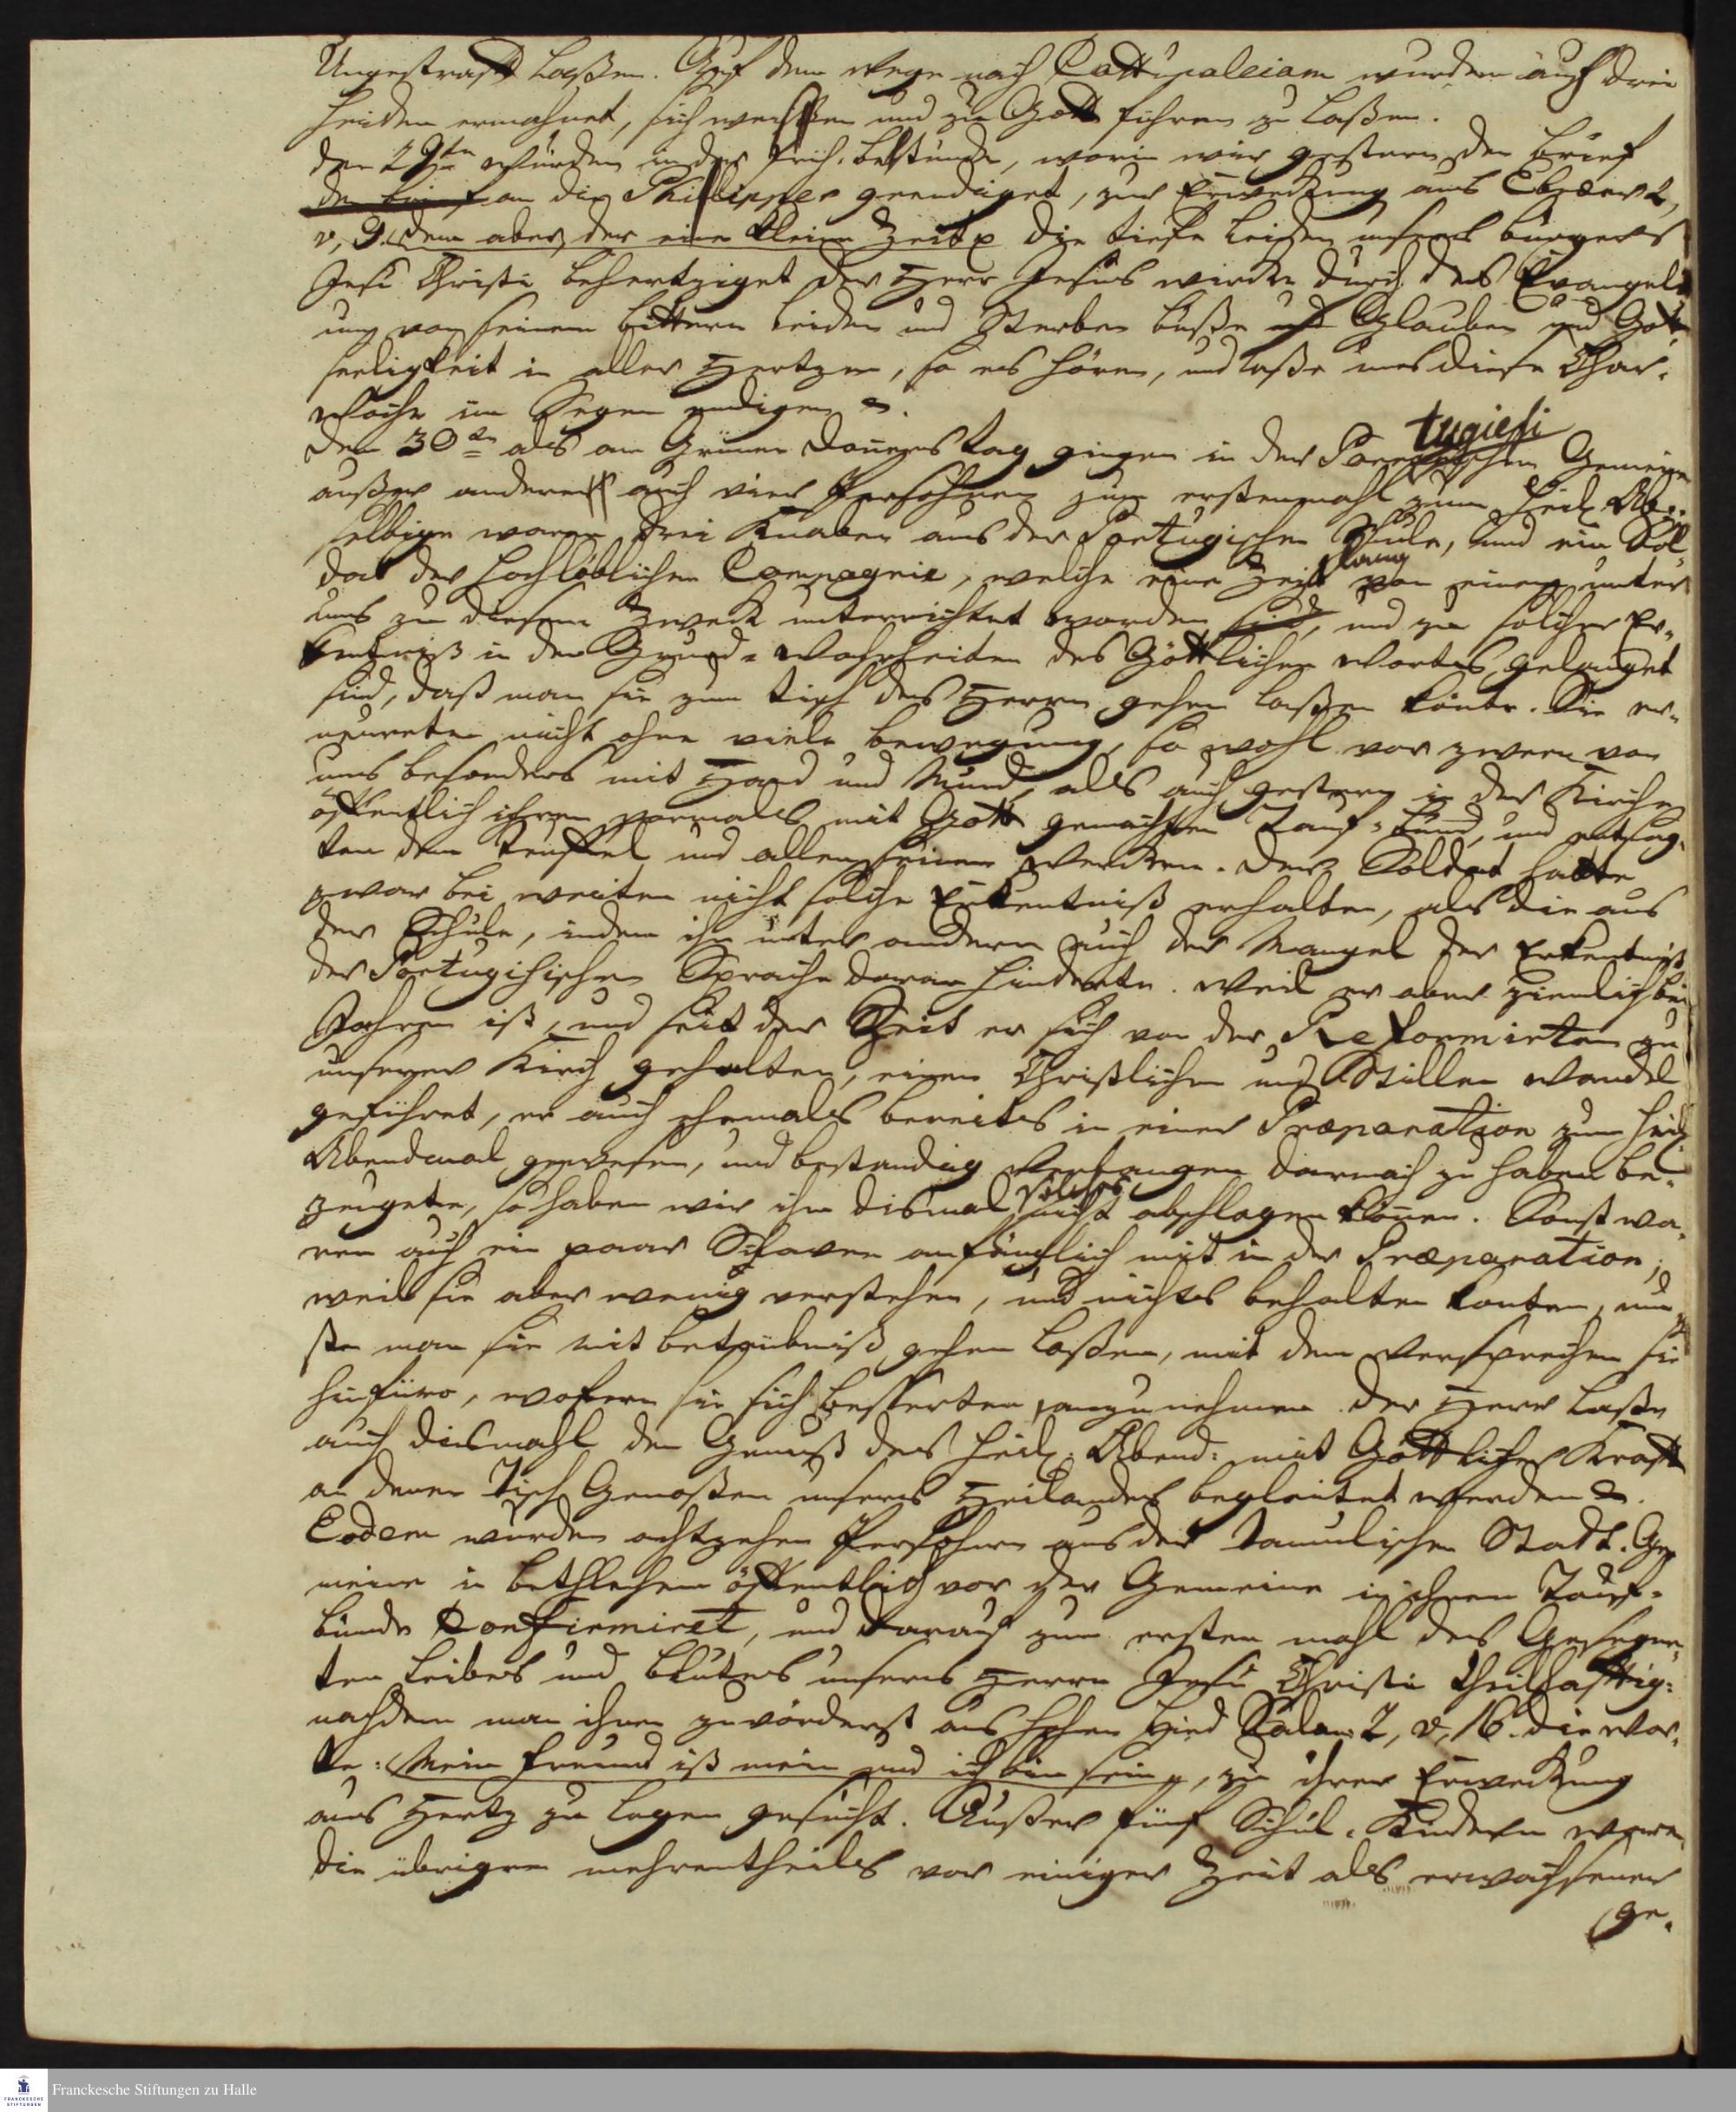 Ungestrafft laßen. Auf dem wege nach Cattupaleiam wurden auch drei
Heiden ermahnet, sich und zu Gott führen zu laßen.
den 29ten wurden in der früh betstunde, worin wir gestern den brief
an die Philipper geendiget, zur Erweckung aus Ebræer 2,
v, 9. dem aber, der eine kleine Zeit p die tiefe leiden unsers bürgers
Jesu Christi behertziget der Herr Jesus wircke durch das Evangeli
um von seinem bittern leiden und Sterben buße Glauben und Gott
seeligkeit in aller Hertzen, so es hören, und laße uns diese Char-
woche im Segen endigen.
den 30ten als am Grünen donnerstag gingen in der Portugiesischen Gemeine
außer anderen auch vier Persohnen zum erstenmahl zum heil. Ab.
selbige waren drei Knaben aus der Portugischen Schule, und ein Sol
dat der hochlöblichen Compagnie, welche eine Zeit lang von einem unter
uns zu diesem Zweck unterrichtet worden sind, und zu solcher Er-
kentniß in den Grund-wahrheiten des Göttlichen wortes gelanget
sind, daß man sie zum tisch des Herrn gehen laßen konte. Sie er-
neureten nicht ohne viele bewegung, so wohl vor zween von
uns besonders mit Hand und Mund, als auch gestern in der Kirche
öffentlich ihren vormals mit Gott gemachten Tauf-bund, und entsag-
ten dem teuffel und allen seinen wercken. der Soldat hatte
zwar bei weiten nicht solche Erkentniß erhalten, als die aus
der Schule, indem ihn unter andern auch der Mangel der Erkentniß
der Portugisischen Sprache daran hinderte. weil er aber ziemlich bei
Jahren ist, und seit der Zeit er sich von den Reformirten zu
unserer Kirch gehalten, einen Christlichen und Stillen wandel
geführet, er auch ehemals bereits in einer Præparation zum heil.
Abendmal gewesen, und bestandig verlangen darnach zu haben be-
zeugete, so haben wir ihm dismal solches nicht abschlagen können. Sonst wa-
ren auch ein paar Sclaven anfänglich mit in der Præparation,
weil sie aber wenig verstehen, und nichts behalten konten, mu-
ste man sie mit betrübniß gehen laßen, mit dem versprechen sie
hinfüro, wofern sie sich besserten, anzunehmen. der Herr laße
auch diesmahl den Genuß des heil. Abend: mit Göttlicher Krafft
an denen Tisch Genoßen unsers Heilandes begleitet werden.
Eodem wurden achtzehen Persohnen aus der tamulischen Stadt-Ge
meine in bethlehem öffentlich vor der Gemeine in ihrem Tauf-
bunde Confirmiret, und darauf zum ersten mahl des Gesegne-
ten leibes und blutes unsers Herrn Jesu Christi theilhafftig:
nachdem man ihnen zuvörderst aus hohen Lied Salom: 2, v, 16. die wor-
te: Mein freund ist mein und ich bin sein p, zu ihrer Erweckung
ans Hertz zu legen gesucht. Außer fünf Schul-Kindern waren
die übrigen mehrentheils vor einiger Zeit als erwachsener
ge-
Franckesche Stiftungen zu Halle
FRANCKESCHE STIFTUNGEN